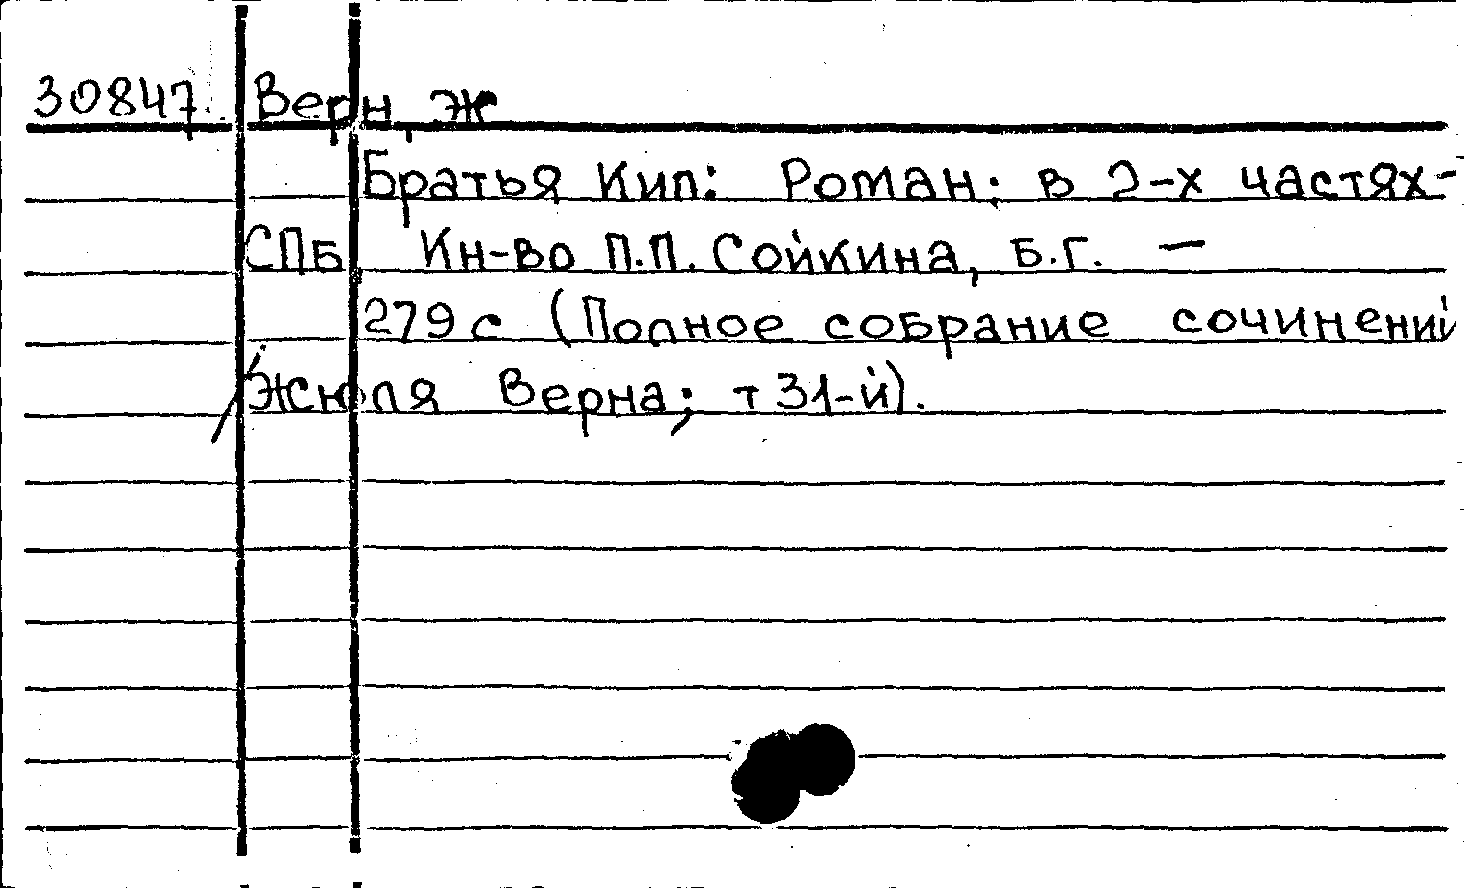 30847. Верн, Ж
Братья Кип: Роман: в 2-х частях-
СПб, Кн-во П.П. Сойкина, Б.Г. —
279 с (Полное собрание сочинений
Жюля Верна; т 31-й).